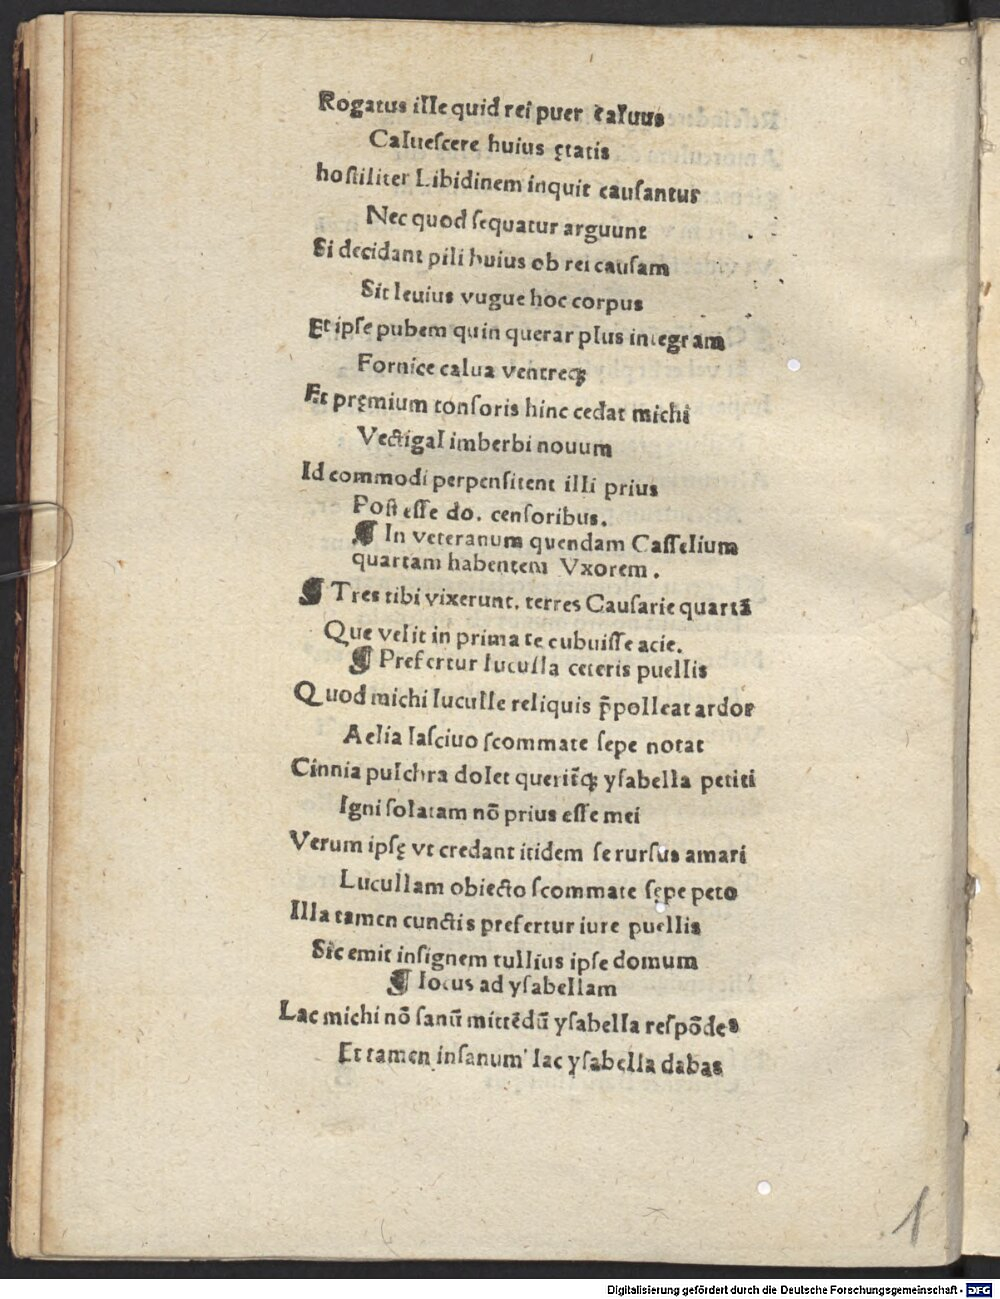 Rogatus ille quid rei puer caluus
Caluescere huius ętatis
hoſtiliter Libidinem inquit cauſantur
Nec quod ſequatur arguunt
Si decidant pili huius ob rei cauſam
Sit leuius vugue hoc corpus
Et ipſe pubem quin querar plus integram
Fornice calua ventreqꝫ
Et pręmium tonſoris hinc cedat michi
Vectigal imberbi nouum
Id commodi perpenſitent illi prius
Poſt eſſe do. cenſoribus.
¶ In veteranum quendam Caſſelium
quartam habentem Vxorem.
¶ Tres tibi vixerunt. terres Cauſarie quartā
Que velit in prima te cubuiſſe acie.
¶ Prefertur luculla ceteris puellis
Quod michi luculle reliquis p̄polleat ardor
Aelia laſciuo ſcommate ſepe notat
Cinnia pulchra dolet querit̃qꝫ yſabella petiti
Igni ſolatam nō prius eſſe mei
Verum ipſę vt credant itidem ſe rurſus amari
Lucullam obiecto ſcommate ſępe peto
Illa tamen cunctis prefertur iure puellis
Sic emit inſignem tullius ipſe domum
¶ Iocus ad yſabellam
Lac michi nō ſanū mittēdū yſabella reſpōdes
Et tamen inſanum lac yſabella dabas
1
Digitalisierung gefördert durch die Deutsche Forschungsgemeinschaft - DFG